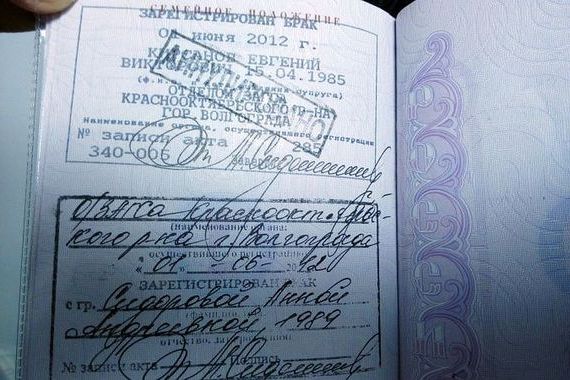 СЕМЕЙНОЕ ПОЛОЖЕНИЕ
ЗАРЕГИСТРИРОВАН БРАК
01 июня 2012 г.
ЕВГЕНИЙ
15.04.1985
супруга)
ОТДЕЛОМ ЗАГСА
КРАСНООКТЯБРЬСКОГО Р-НА
ГОР. ВОЛГОГРАДА
Наименование органа, осуществившего регистрацию
№ записи акта 285
340-006
О/ЗАГСа Краснооктябрь-
(наименование органа,
кого р-на г. Волгограда
осуществившего регистрацию)
"01" 06 2012
ЗАРЕГИСТРИРОВАН БРАК
с гр. Сидоровой Анной
Андреевной, 1989
отчество, дата
№ записи акта
Подпись